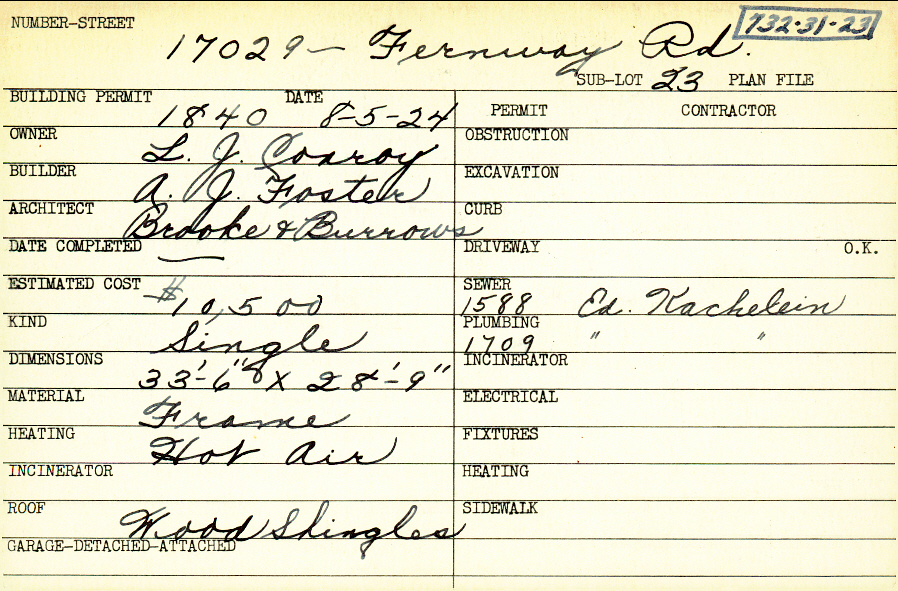 NUMBER-STREET
17029 — Fernway Rd.
732-31-23
SUB-LOT 23 PLAN FILE
BUILDING PERMIT 1840 DATE 8-5-24
OWNER L. J. Conroy
BUILDER A. J. Foster
ARCHITECT Brooke & Burrows
DATE COMPLETED —
ESTIMATED COST $10,500
KIND Single
DIMENSIONS 33'-6" X 28'-9"
MATERIAL Frame
HEATING Hot Air
INCINERATOR
ROOF Wood Shingles
GARAGE-DETACHED-ATTACHED
PERMIT CONTRACTOR
OBSTRUCTION
EXCAVATION
CURB
DRIVEWAY O.K.
SEWER 1588 Ed. Kachelein
PLUMBING 1709 " "
INCINERATOR
ELECTRICAL
FIXTURES
HEATING
SIDEWALK